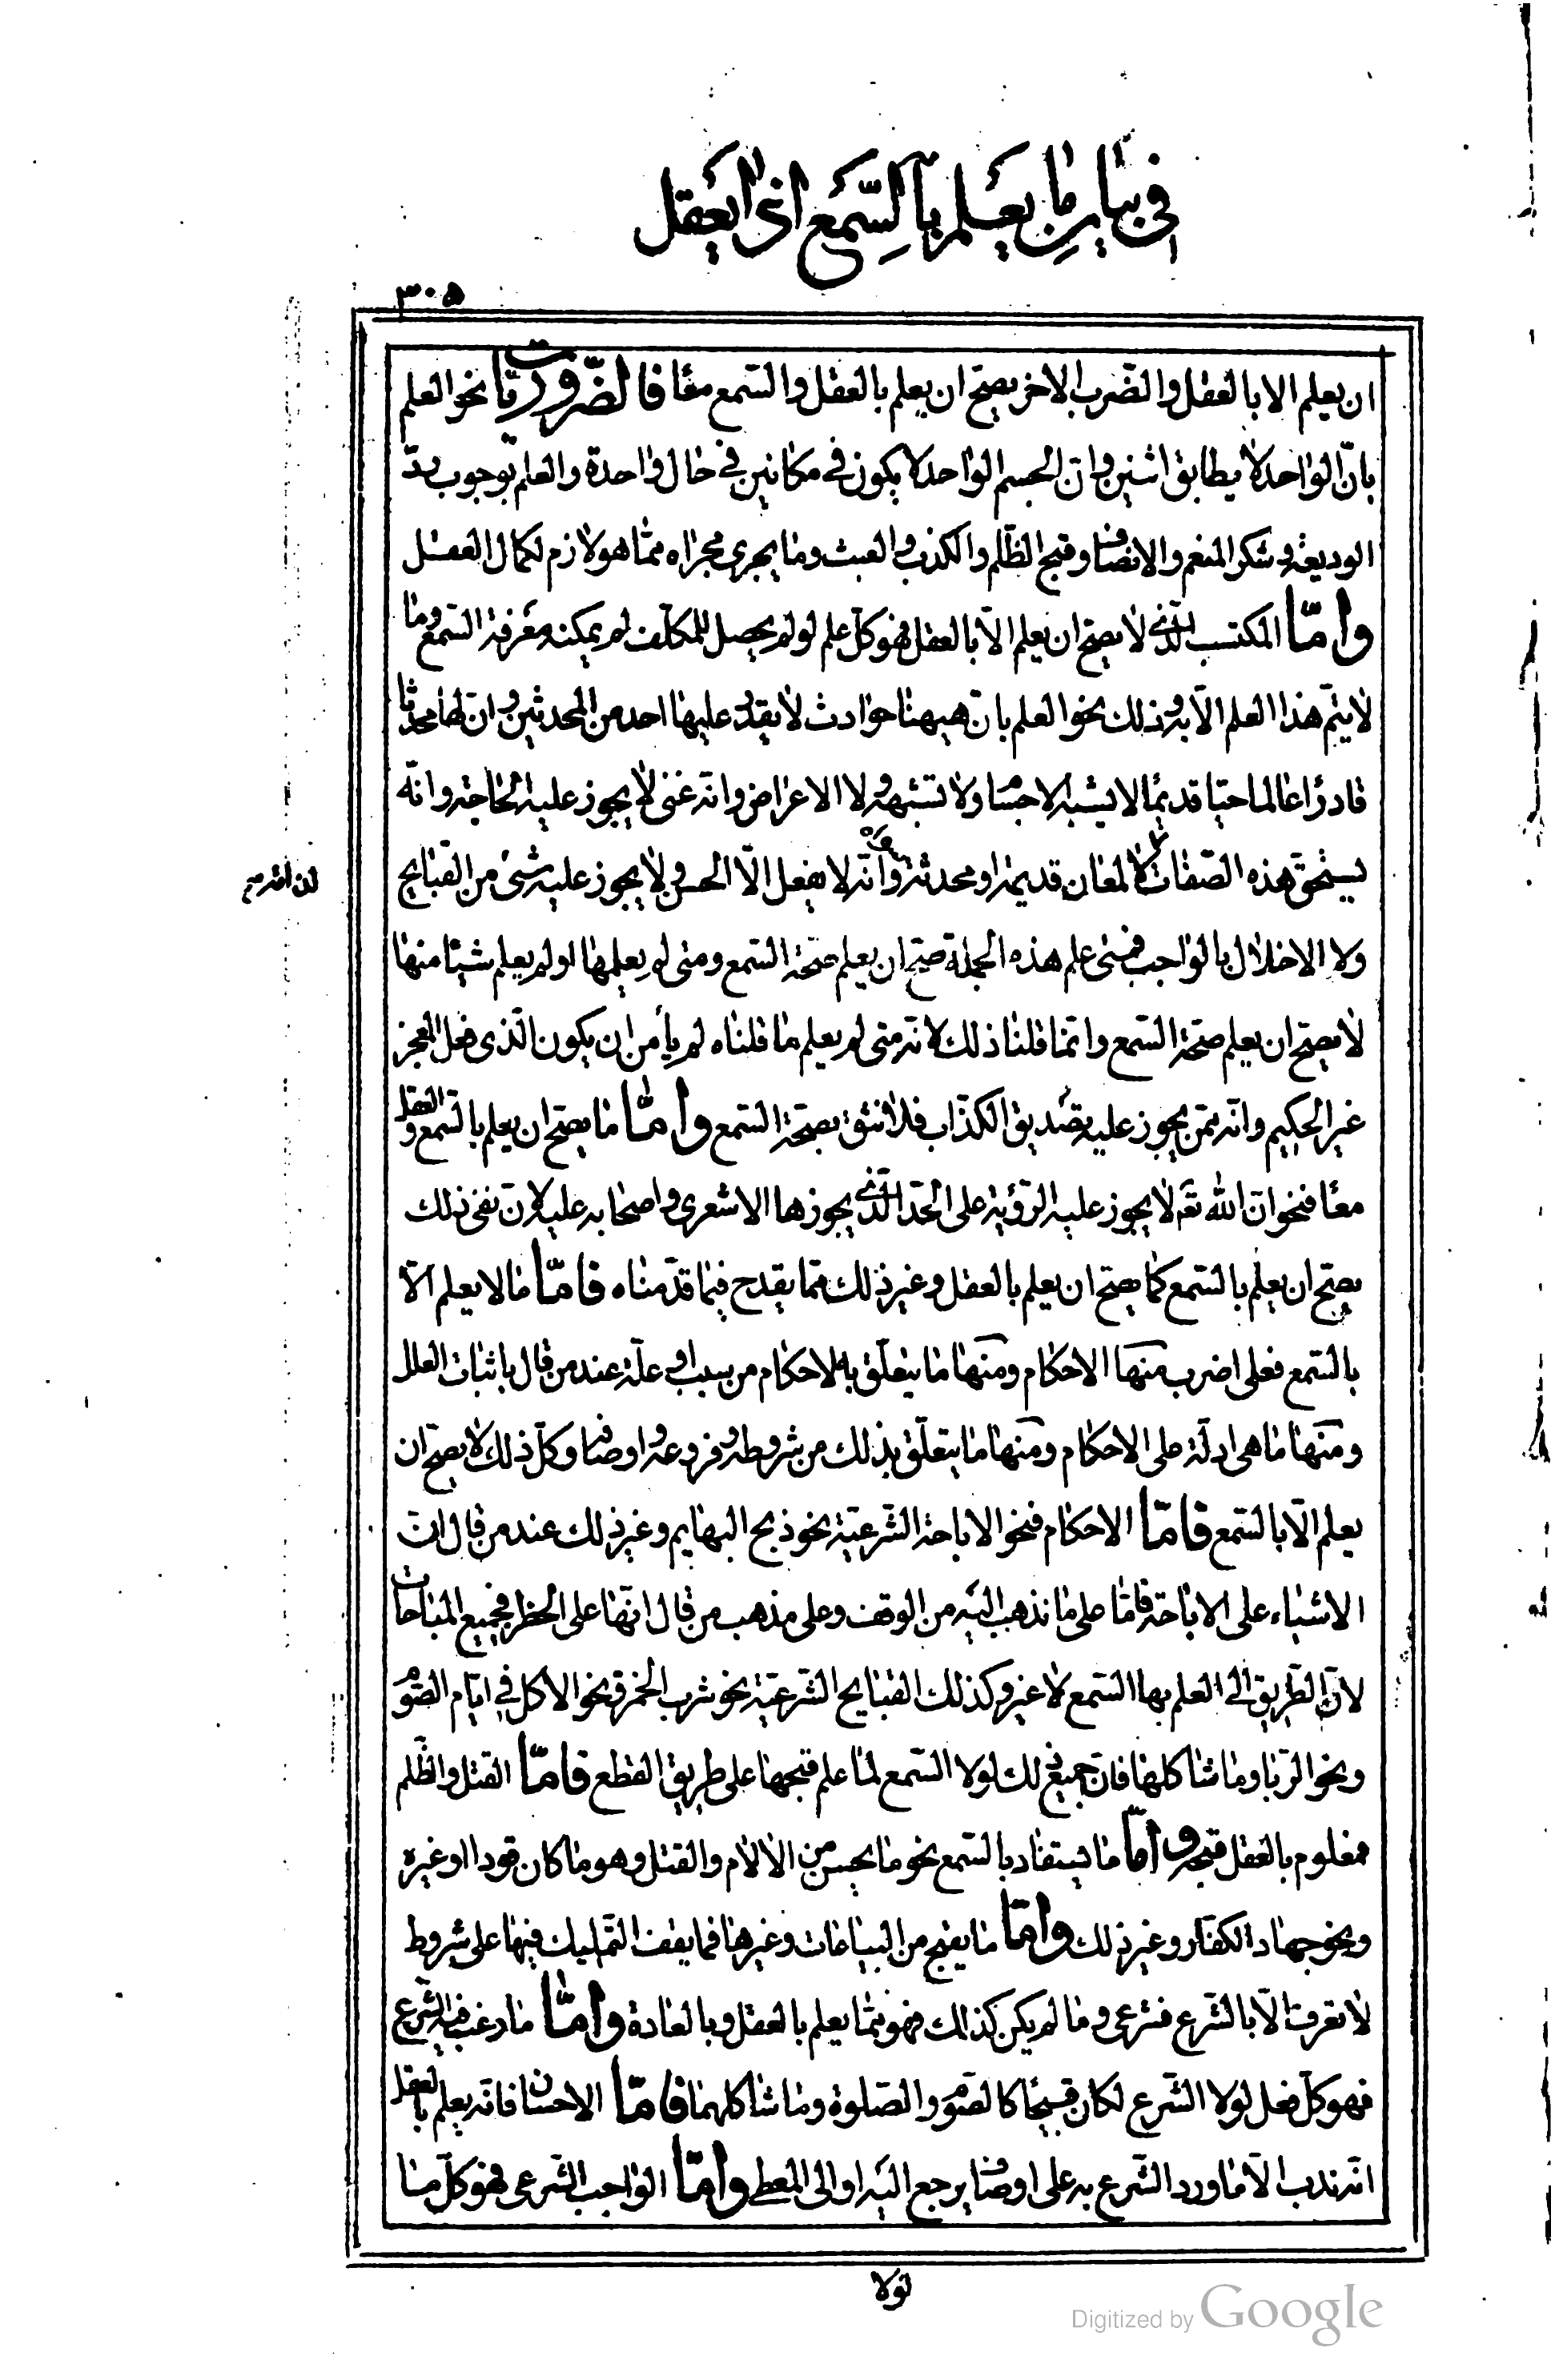 في بيان ما يعلم بالسمع او العقل
٣٠٥
ان يعلم الا بالعقل والضّرب الاخر يصحّ ان يعلم بالعقل والسّمع معًا فالضّروريّات نحو العلم
بانّ الواحد لا يطابق اثنين وانّ الجسم الواحد لا يكون في مكانين في حال واحدة والعلم بوجوب ردّ
الوديعة وشكر المنعم والانصاف وقبح الظّلم والكذب والعبث وما يجري مجراه ممّا هو لازم لكمال العقل
وامّا المكتسب الّذي لا يصحّ ان يعلم الّا بالعقل فهو كلّ علم لو لم يحصل للمكلّف لم يمكنه معرفة السّمع وما
لا يتمّ هذا العلم الّا به وذلك نحو العلم بانّ هيهنا حوادث لا يقدر عليها احد من المحدثين وانّ لها محدثا
قادرًا عالما حيّا قديمًا لا يشبه الاجسام ولا تشبهه ولا الاعراض وانّه غنى لا يجوز عليه الحاجة وانّه
يستحقّ هذه الصّفات لا لمعان قديمة او محدثة وانّه لا يفعل الّا الحسن ولا يجوز عليه شىء من القبايح
ولا الاخلال بالواجب فمتى علم هذه الجملة صحّ ان يعلم صحّة السّمع ومتى لم يعلمها او لم يعلم شيئًا منها
لا يصحّ ان يعلم صحّة السّمع وانّما قلنا ذلك لانّه متى لم يعلم ما قلناه لم يأمن ان يكون الّذى فعل المعجز
غير الحكيم وانّه ممّن يجوز عليه تصديق الكذّاب فلا نثق بصحّة السّمع وامّا ما يصحّ ان يعلم بالسّمع والعقل
معًا فنحو انّ الله تعم لا يجوز عليه الرّؤية على الحدّ الّذي يجوزها الاشعري واصحابه عليه لانّ نفى ذلك
يصحّ ان يعلم بالسّمع كما يصحّ ان يعلم بالعقل وغير ذلك ممّا يقدح فيما قدّمناه فامّا ما لا يعلم الّا
بالسّمع فعلى اضرب منها الاحكام ومنها ما يتعلّق به الاحكام من سبب او علّة عند من قال باثبات العلل
ومنها ما هى ادلّة على الاحكام ومنها ما يتعلّق بذلك من شروطه وفروعه واوصافه وكلّ ذلك لا يصحّ ان
يعلم الّا بالسّمع فامّا الاحكام فنحو الاباحة الشّرعيّة نحو ذبح البهايم وغير ذلك عند من قال انّ
الاشياء على الاباحة فامّا على ما نذهب اليه من الوقف وعلى مذهب من قال انّها على الحظر فجميع المباحات
لانّ الطّريق الى العلم بها السّمع لا غير وكذلك القبايح الشّرعيّة نحو شرب الخمر ونحو الاكل في ايّام الصّوم
ونحو الرّبا وما شاكلها فانّ جميع ذلك لولا السّمع لما علم قبحها على طريق القطع فامّا القتل والظّلم
فمعلوم بالعقل قبحه وامّا ما يستفاد بالسّمع نحو ما يحسن من الالام والقتل وهو ما كان قودا او غيره
ونحو جهاد الكفّار وغير ذلك وامّا ما يقبح من البياعات وغيرها فما يقف التّمليك فيها على شروط
لا تعرف الّا بالشّرع فشرعى وما لم يكن كذلك فهو ممّا يعلم بالعقل وبالعادة وامّا ما رغب فيه الشّرع
فهو كلّ فعل لولا الشّرع لكان قبيحًا كالصّوم والصّلوة وما شاكلهما فامّا الاحسان فانّه يعلم بالعقل
انّه ندب الّا ما ورد الشّرع به على اوصاف يرجع اليه او الى المعطى وامّا الواجب الشّرعى فهو كلّ ما
لولا
Digitized by Google